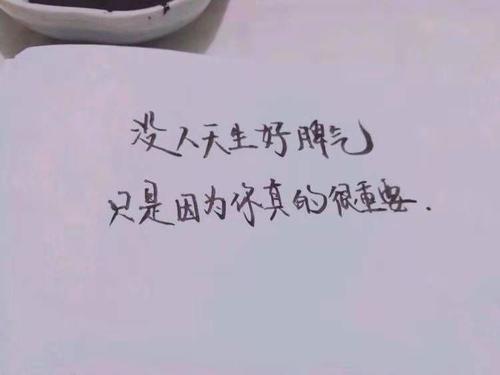 没人天生好脾气
只是因为你真的很重要.